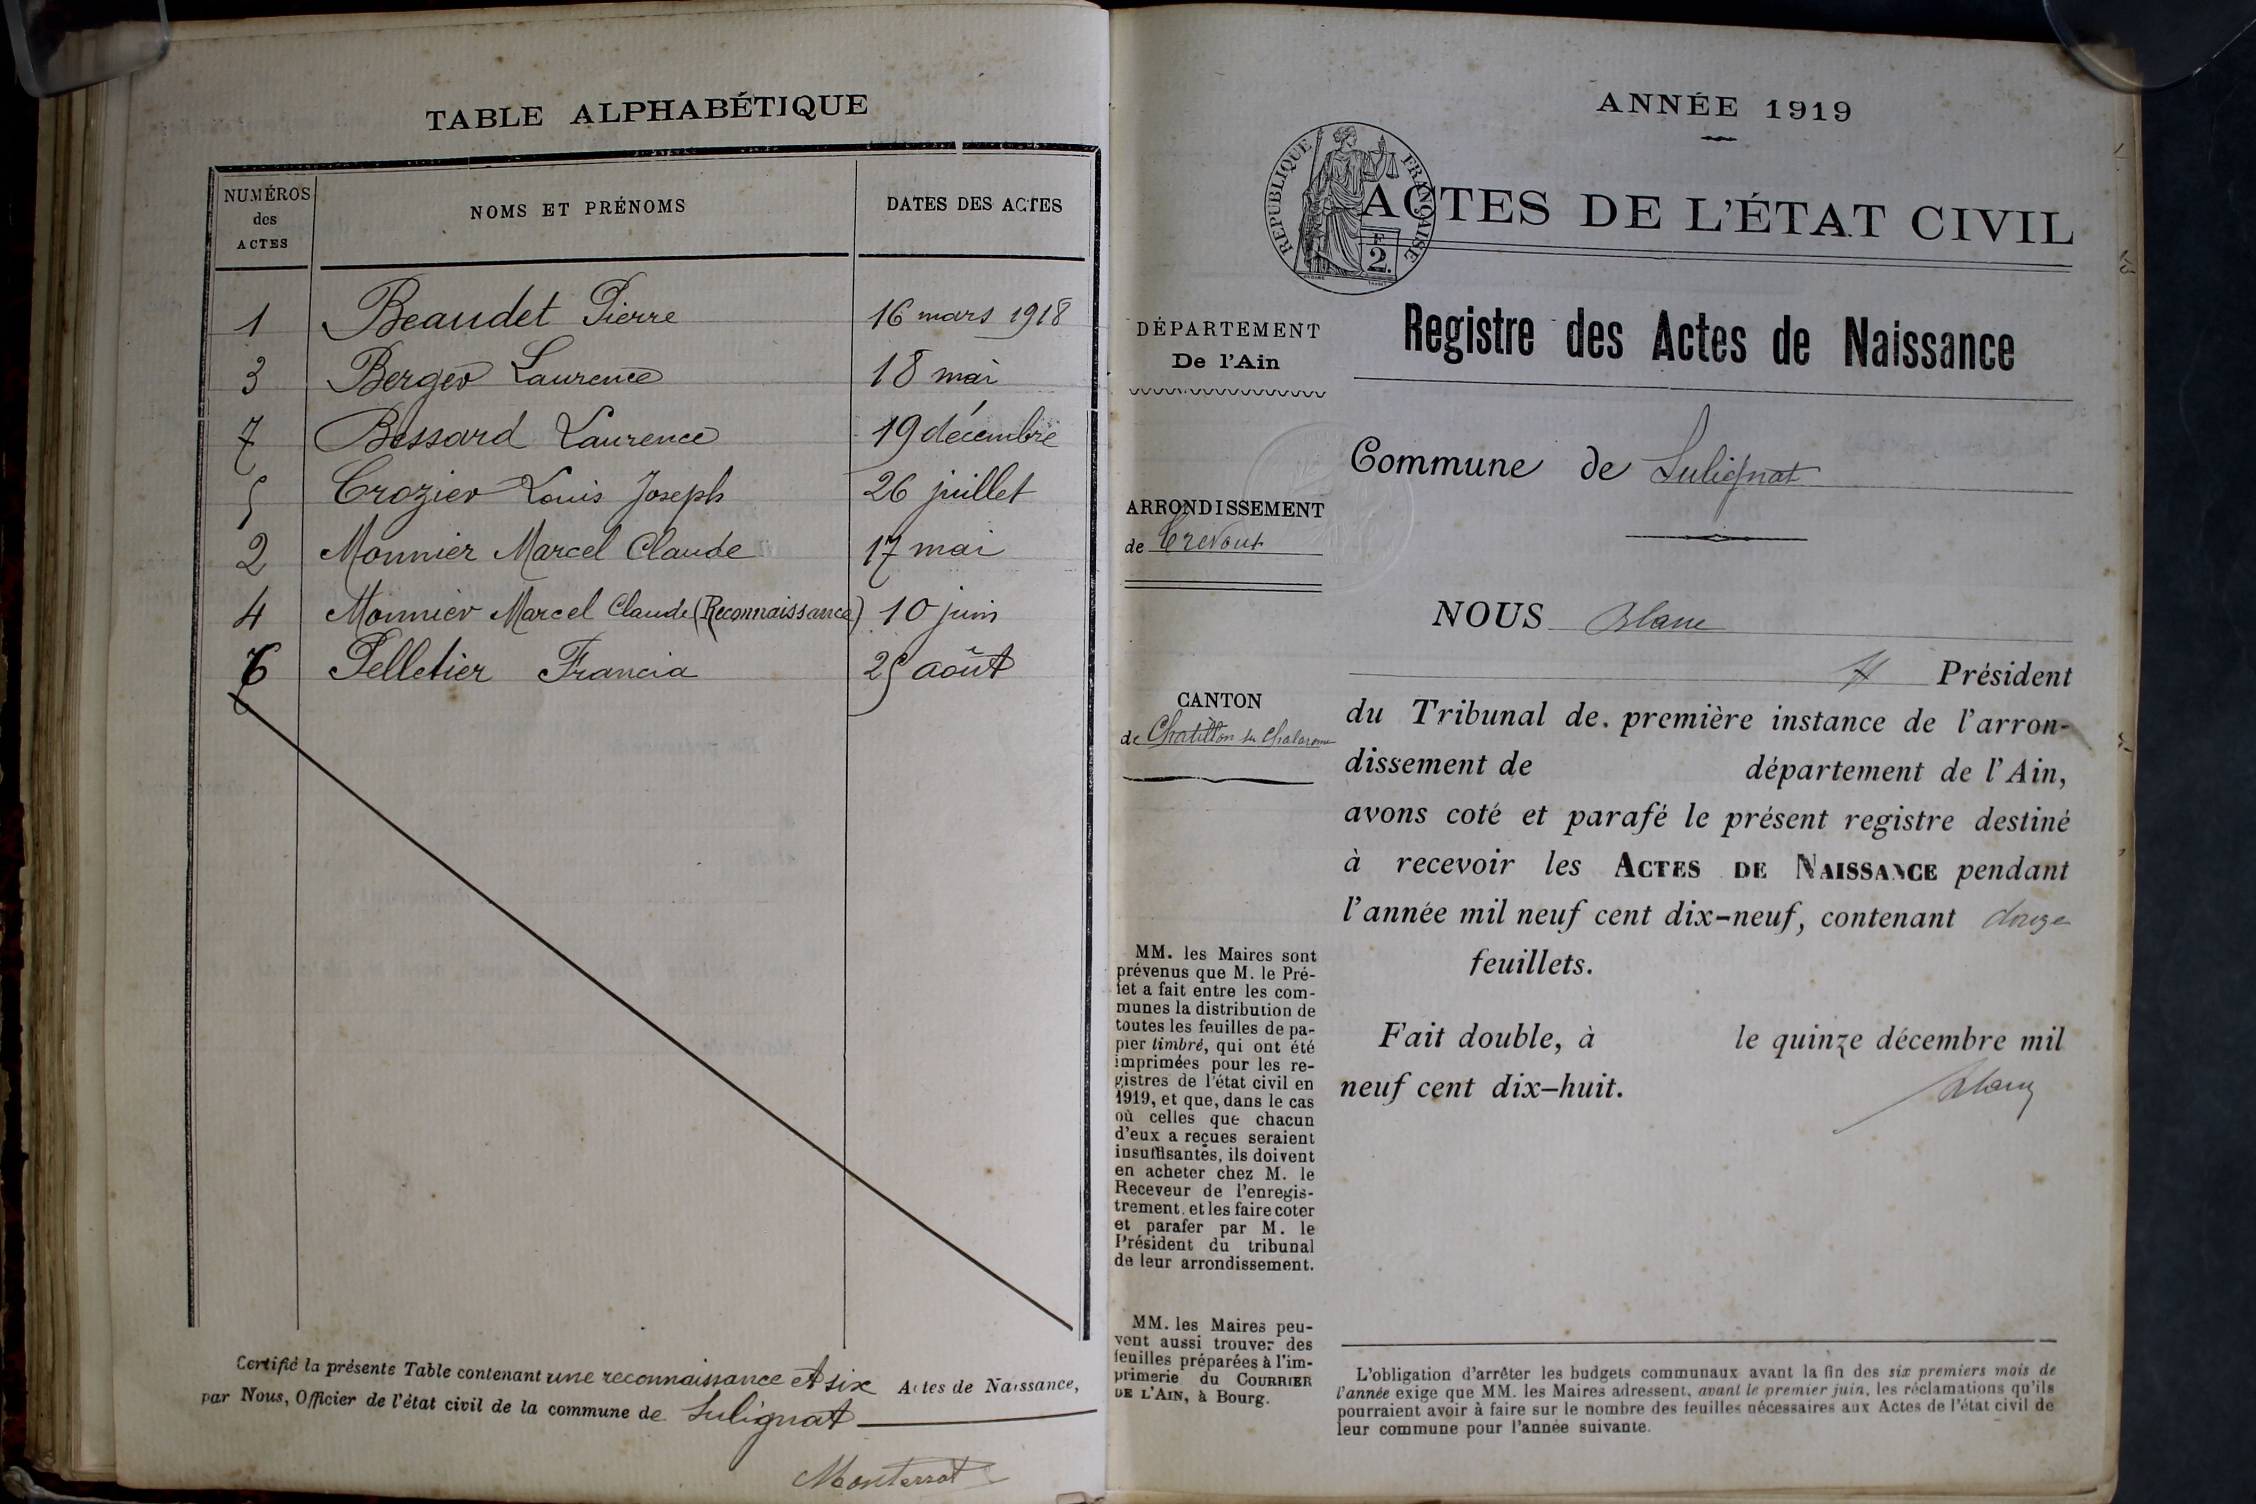 TABLE ALPHABÉTIQUE
NUMÉROS des ACTES
NOMS ET PRÉNOMS
DATES DES ACTES
1 Beaudet Pierre 16 mars 1918
3 Berger Laurence 18 mai
7 Bessard Laurence 19 décembre
5 Crozier Louis Joseph 26 juillet
2 Monnier Marcel Claude 17 mai
4 Monnier Marcel Claude (Reconnaissance) 10 juin
6 Pelletier Francia 25 août
Certifié la présente Table contenant une reconnaissance et six Actes de Naissance,
par Nous, Officier de l'état civil de la commune de Sulignat
Monterrat
ANNÉE 1919
RÉPUBLIQUE FRANÇAISE
F
2.
ACTES DE L'ÉTAT CIVIL
DÉPARTEMENT
De l'Ain
ARRONDISSEMENT
de Trevoux
CANTON
de Chatillon su Chalaronne
MM. les Maires sont
prévenus que M. le Pré-
fet a fait entre les com-
munes la distribution de
toutes les feuilles de pa-
pier timbré, qui ont été
imprimées pour les re-
gistres de l'état civil en
1919, et que, dans le cas
où celles que chacun
d'eux a reçues seraient
insuffisantes, ils doivent
en acheter chez M. le
Receveur de l'enregis-
trement, et les faire coter
et parafer par M. le
Président du tribunal
de leur arrondissement.
MM. les Maires peu-
vent aussi trouver des
feuilles préparées à l'im-
primerie du COURRIER
DE L'AIN, à Bourg.
Registre des Actes de Naissance
Commune de Sulignat
NOUS Blanc
Président
du Tribunal de première instance de l'arron-
dissement de département de l'Ain,
avons coté et parafé le présent registre destiné
à recevoir les ACTES DE NAISSANCE pendant
l'année mil neuf cent dix-neuf, contenant douze
feuillets.
Fait double, à le quinze décembre mil
neuf cent dix-huit.
Blanc
L'obligation d'arrêter les budgets communaux avant la fin des six premiers mois de
l'année exige que MM. les Maires adressent, avant le premier juin, les réclamations qu'ils
pourraient avoir à faire sur le nombre des feuilles nécessaires aux Actes de l'état civil de
leur commune pour l'année suivante.